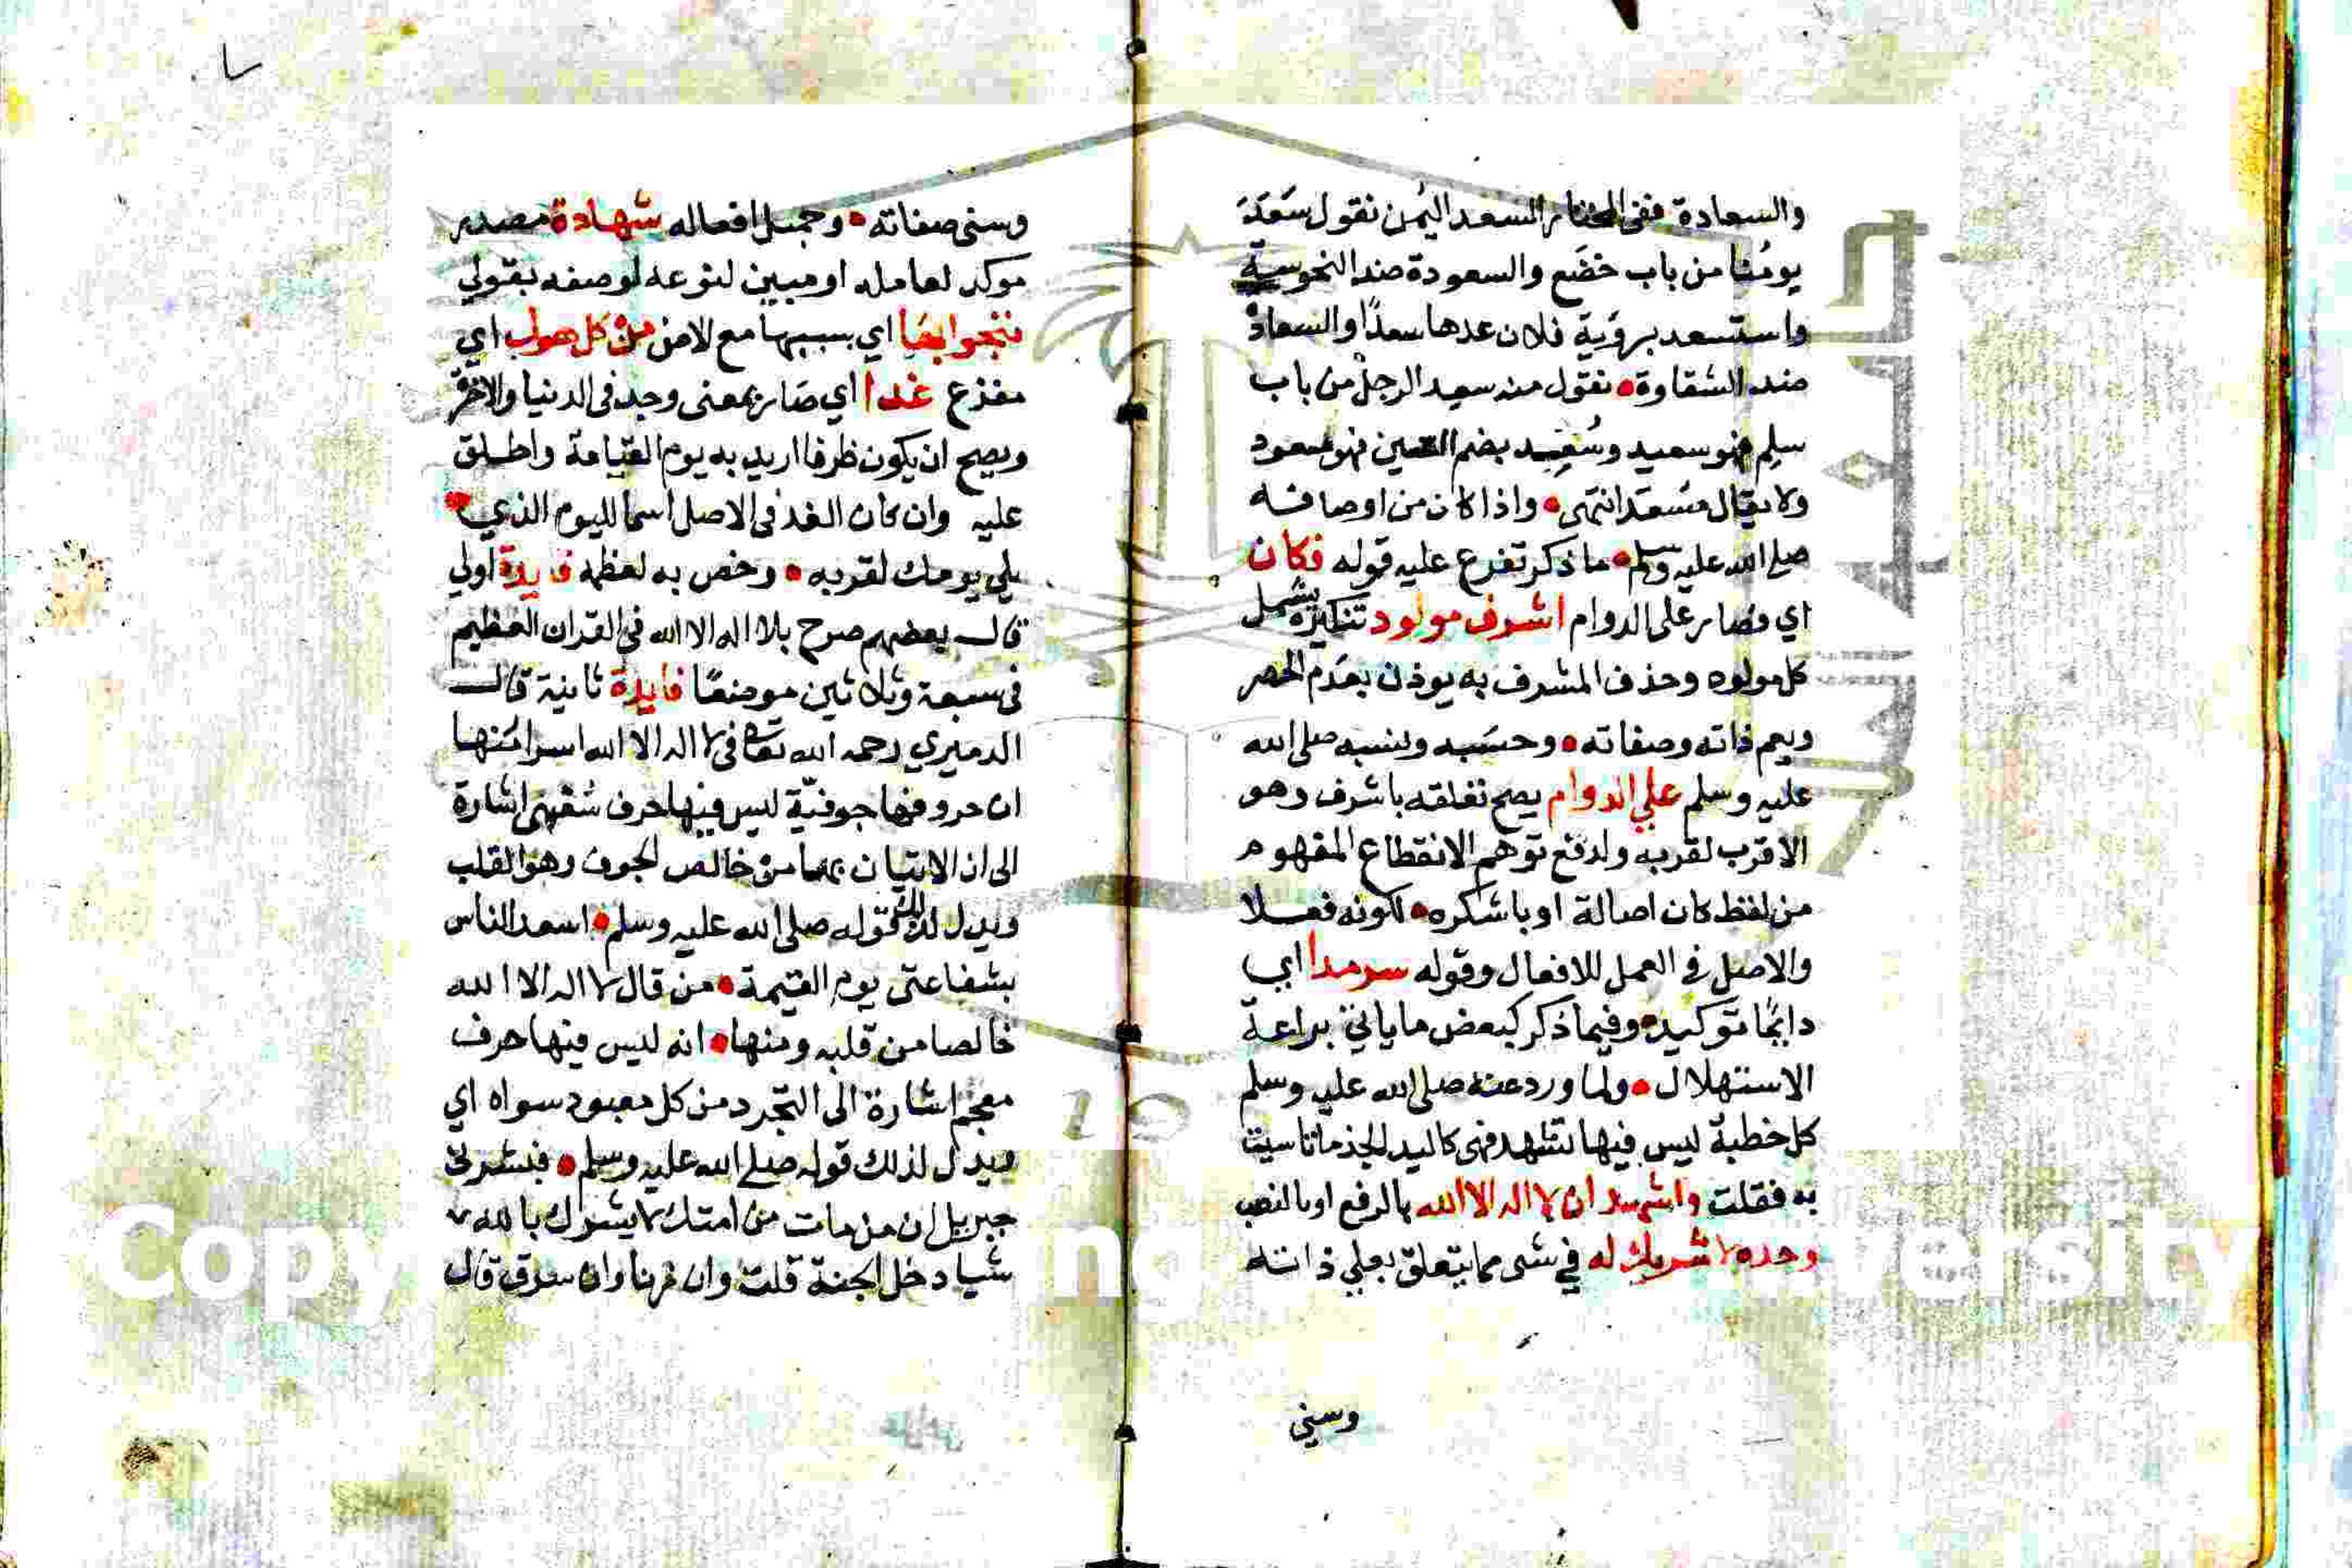 والسعادة ففى المختار السعد اليُمن نقول سَعَدَ
يومُنا من باب خضَع والسعودة ضد النحوسة
واستسعد برؤية فلان عدها سعدًا والسعادة
ضد الشقاوة • نقول منه سعيد الرجل من باب
سلِم فهو سعيد وسُعِد بضم السين فهو مسعود
ولا يقال مُسعَد انتهى • واذا كان من اوصافه
صلى الله عليه وسلم • ما ذكر تفرع عليه قوله فكان
اي وصار على الدوام اشرف مولود تنكيره يشمل
كل مولود وحذف المشرف به يوذن بعدم الحصر
ويعم ذاته وصفاته • وحسَبه ونسبه صلى الله
عليه وسلم علي الدوام يصح تعلقه باشرف وهو
الاقرب لقربه ولدفع توهم الانقطاع المفهوم
من لفظ كان اصالة او باشكره • لكونه فعلا
والاصل في العمل للافعال وقوله سرمدا اي
دايمًا توكيد • وفيما ذكر كبعض ما ياتي براعة
الاستهلال • ولما ورد عنه صلى الله عليه وسلم
كل خطبة ليس فيها تشهد فهى كاليد الجذما تاسيت
به فقلت واشهد ان لا اله الا الله بالرفع او بالنصب
وحده لا شريك له في شى مما يتعلق بعلي ذاته
وسنى
وسنى صفاته • وجميل افعاله شهادة مصدر
موكد لعامله او مبين لنوعه لوصفه بقولي
ننجوا بها اي بسببها مع الامن من كل هول اي
مفزع غدا اي صار بمعنى وجد فى الدنيا والاخرة
ويصح ان يكون ظرفا اريد به يوم القيامة واطلق
عليه وان كان الغد فى الاصل اسما لليوم الذي
يلي يومك لقربه • وخص به لعظمه فايدة اولي
قال بعضهم صرح بلا اله الا الله في القران العظيم
فى سبعة وثلاثين موضعًا فايدة ثانية قال
الدميري رحمه الله تعالى فى لا اله الا الله اسرار منها
ان حروفها جوفيّة ليس فيها حرف شفهي اشارة
الى ان الاتيان بها من خالص الجوف وهو القلب
ويدل لذلك قوله صلى الله عليه وسلم • اسعد الناس
بشفاعتى يوم القيمة • من قال لا اله الا الله
خالصا من قلبه ومنها • انه ليس فيها حرف
معجم اشارة الى التجرد من كل معبود سواه اي
ويدل لذلك قوله صلى الله عليه وسلم • فبشرنى
جبريل ان من مات من امتك لا يشرك بالله
شيا دخل الجنة قلت وان زنا وان سرق قال